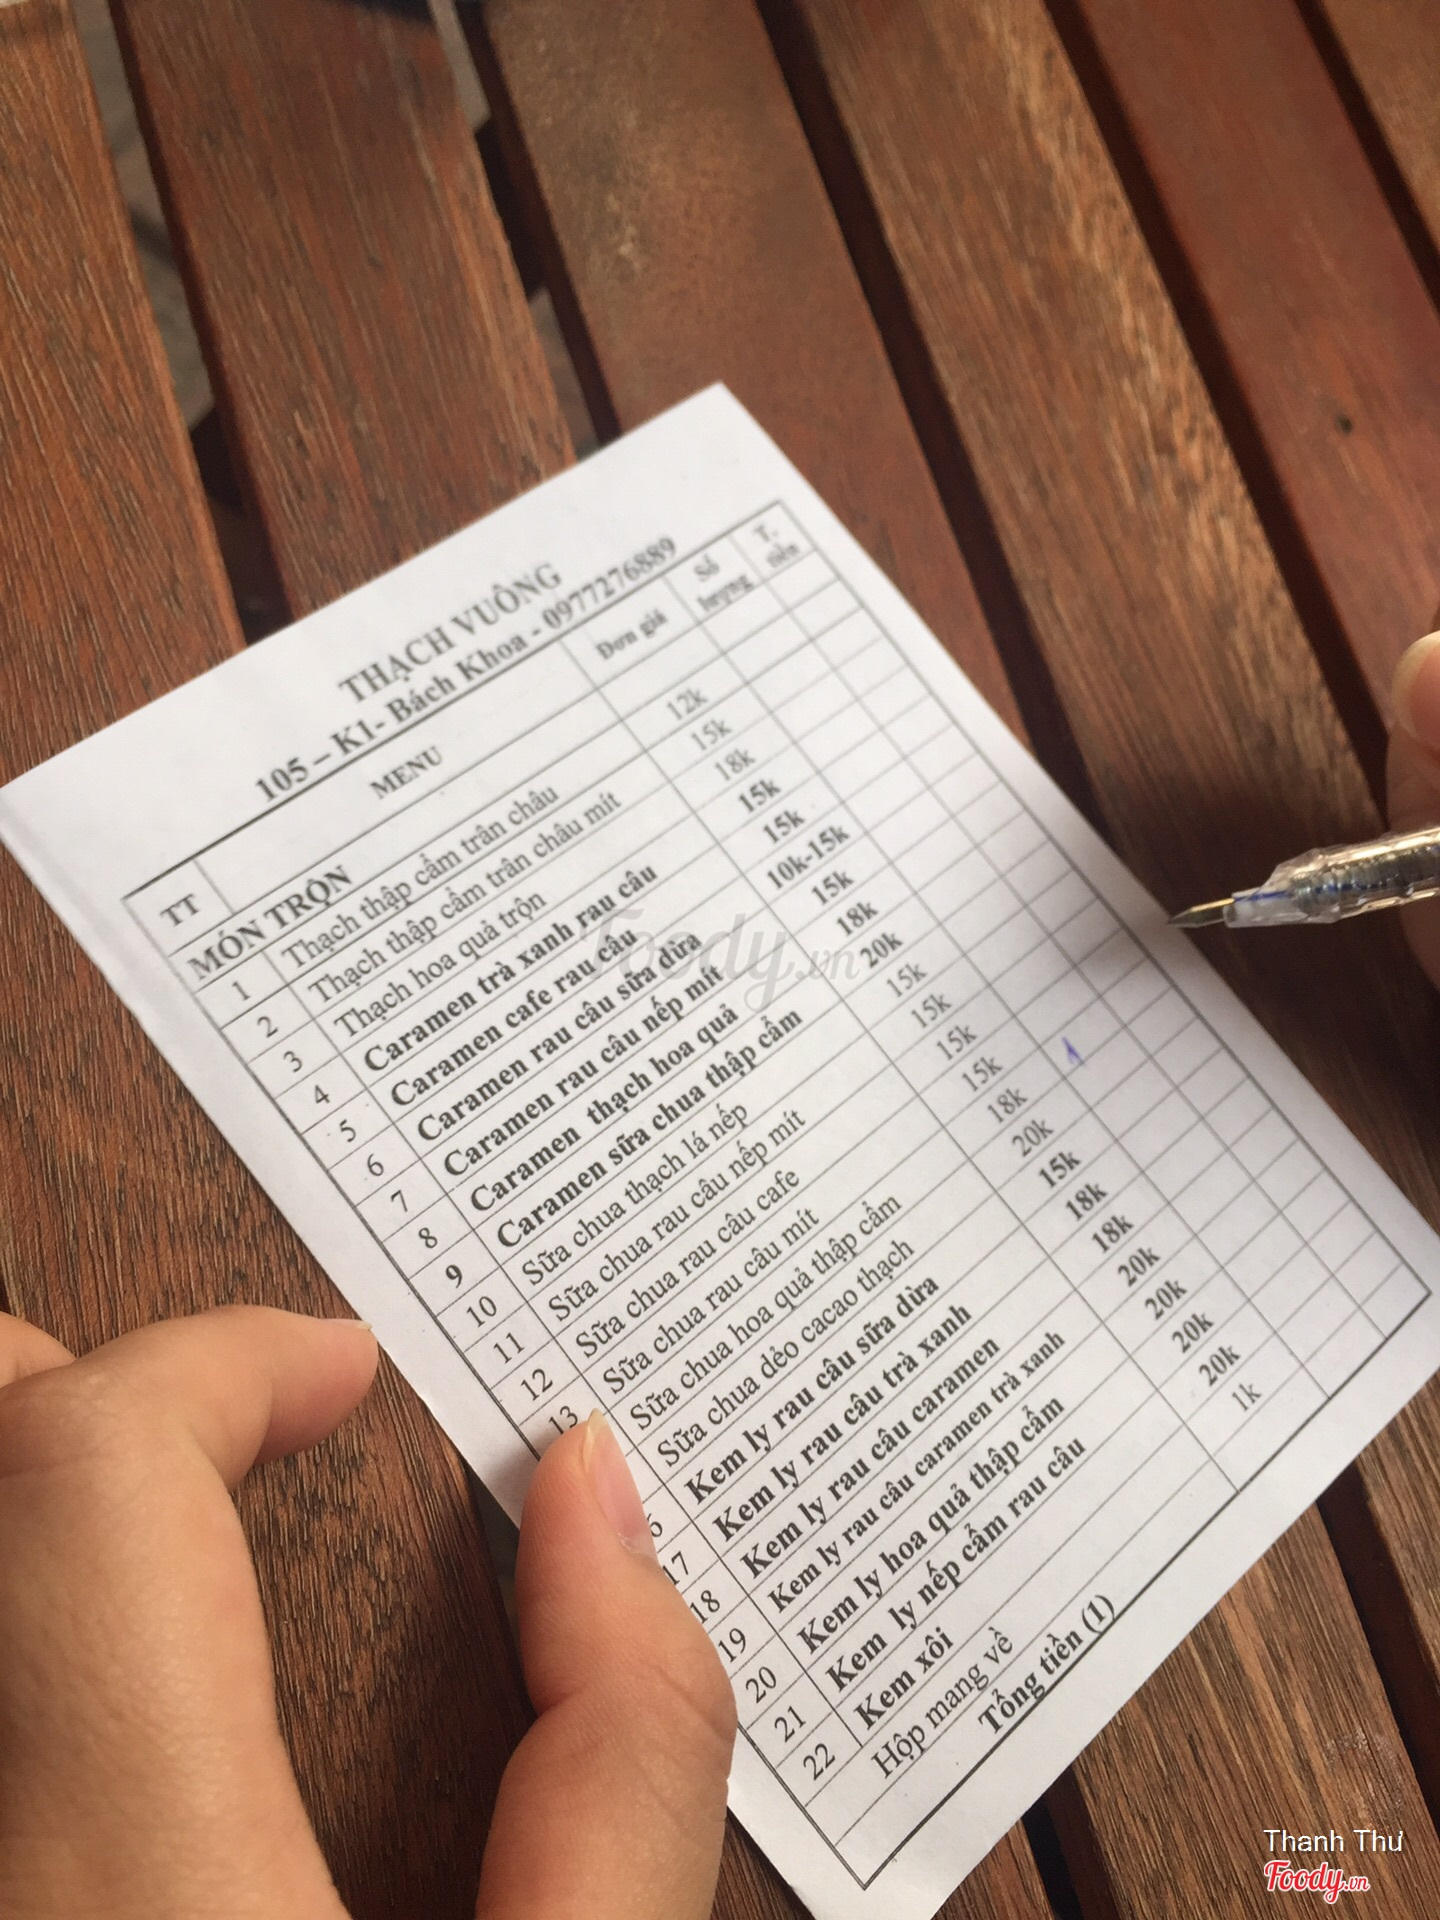 THẠCH VUÔNG
105 – K1- Bách Khoa - 0977276889
TT MENU Đơn giá Số lượng T. tiền
MÓN TRỘN
1 Thạch thập cẩm trân châu 12k
2 Thạch thập cẩm trân châu mít 15k
3 Thạch hoa quả trộn 18k
4 Caramen trà xanh rau câu 15k
5 Caramen cafe rau câu 15k
6 Caramen rau câu sữa dừa 10k-15k
7 Caramen rau câu nếp mít 15k
8 Caramen thạch hoa quả 18k
9 Caramen sữa chua thập cẩm 20k
10 Sữa chua thạch lá nếp 15k
11 Sữa chua rau câu nếp mít 15k
12 Sữa chua rau câu cafe 15k
13 Sữa chua rau câu mít 15k
Sữa chua hoa quả thập cẩm 18k 1
Sữa chua dẻo cacao thạch 20k
6 Kem ly rau câu sữa dừa 15k
17 Kem ly rau câu trà xanh 18k
18 Kem ly rau câu caramen 18k
19 Kem ly rau câu caramen trà xanh 20k
20 Kem ly hoa quả thập cẩm 20k
21 Kem ly nếp cẩm rau câu 20k
22 Kem xôi 20k
Hộp mang về 1k
Tổng tiền (1)
Foody.vn
Thanh Thư
Foody.vn